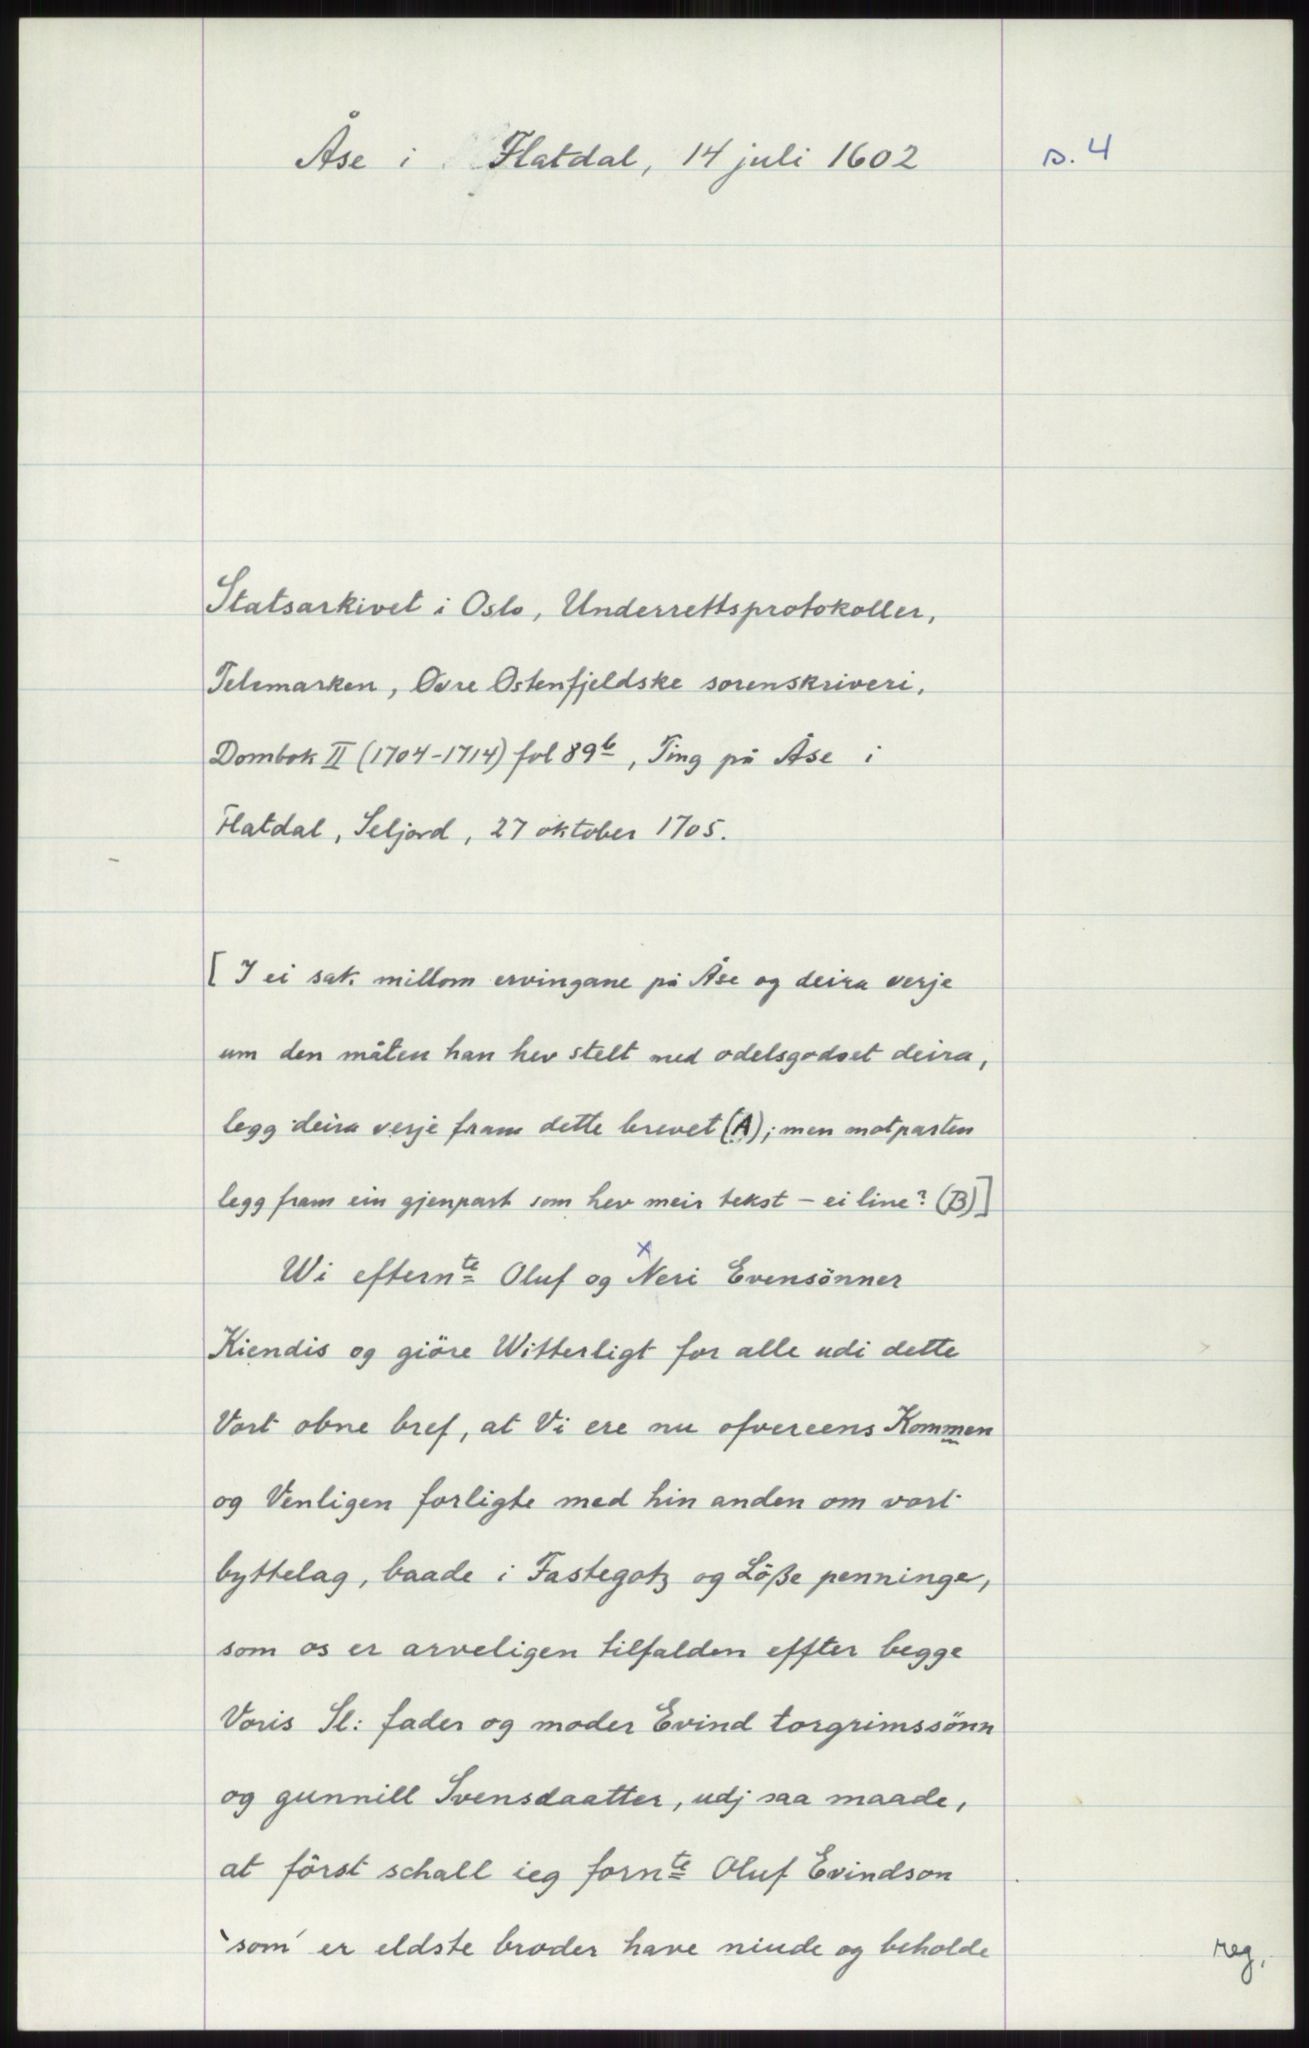 Åse i Flatdal, 14 juli 1602
s. 4
Statsarkivet i Oslo, Underrettsprotokoller,
Telemarken, Øvre Østenfjeldske sorenskriveri,
Dombok II (1704-1714) fol 89b, Ting på Åse i
Flatdal, Seljord, 27 oktober 1705.
[I ei sak millom ervingane på Åse og deira verje
um den måten han hev stelt med odelsgodset deira,
legg deira verje fram dette brevet (A); men motparten
legg fram ein gjenpart som hev meir tekst – ei line? (B)]
Wi efternte Oluf og xNeri Evensönner
Kiendis og giöre Witterligt for alle udi dette
Vort obne bref, at Vi ere nu ofvereens Kommen
og Venligen forligte med hin anden om vort
byttelag, baade i Fastegotz og Löße penninge,
som os er arveligen tilfalden effter begge
Voris Sl: fader og moder Evind torgrimssönn
og gunnill Svensdaatter, udj saa maade,
at först schall ieg fornte Oluf Evindson
`som´ er eldste broder have niude og beholde
reg.